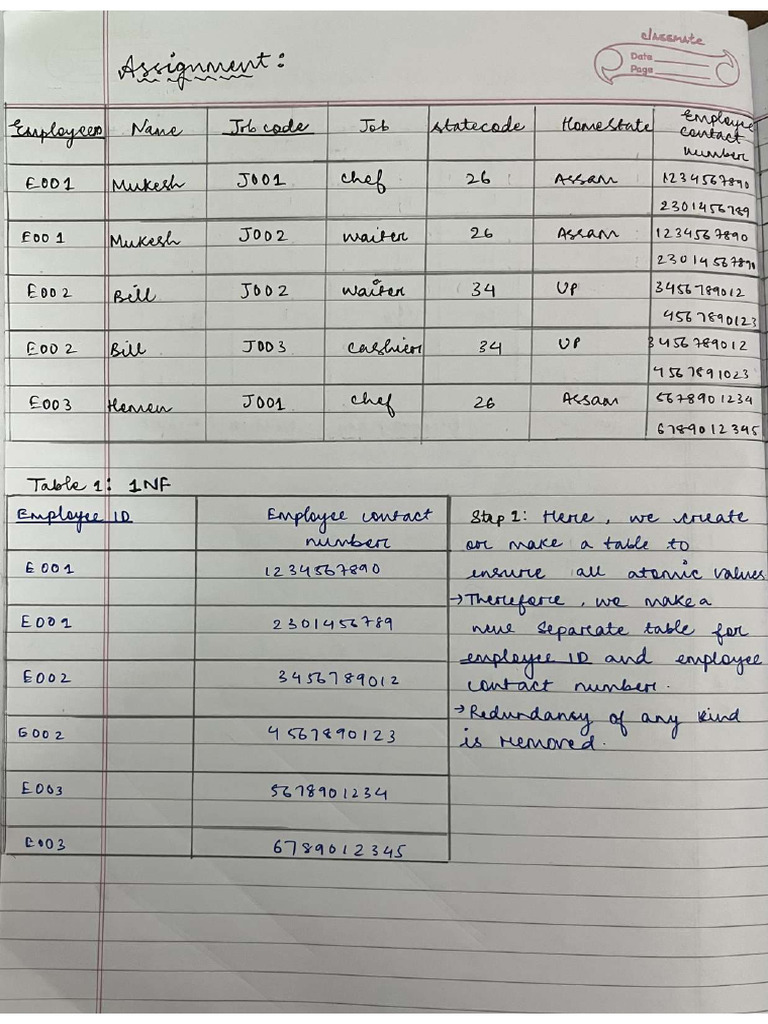 classmate
Date
Page
Assignment:
EmployeeID Name Job code Job statecode HomeState Employee contact number
E001 Mukesh J001 chef 26 Assam 1234567890
2301456789
E001 Mukesh J002 waiter 26 Assam 1234567890
2301456789
E002 Bill J002 waiter 34 UP 3456789012
4567890123
E002 Bill J003 cashier 34 UP 3456789012
4567891023
E003 Hemen J001 chef 26 Assam 5678901234
6789012345
Table 1: 1NF
Employee ID Employee contact number
E001 1234567890
E001 2301456789
E002 3456789012
E002 4567890123
E003 5678901234
E003 6789012345
Step 1: Here, we create
or make a table to
ensure all atomic values
→ Therefore, we make a
new separate table for
employee ID and employee
contact number.
→ Redundansy of any kind
is removed.